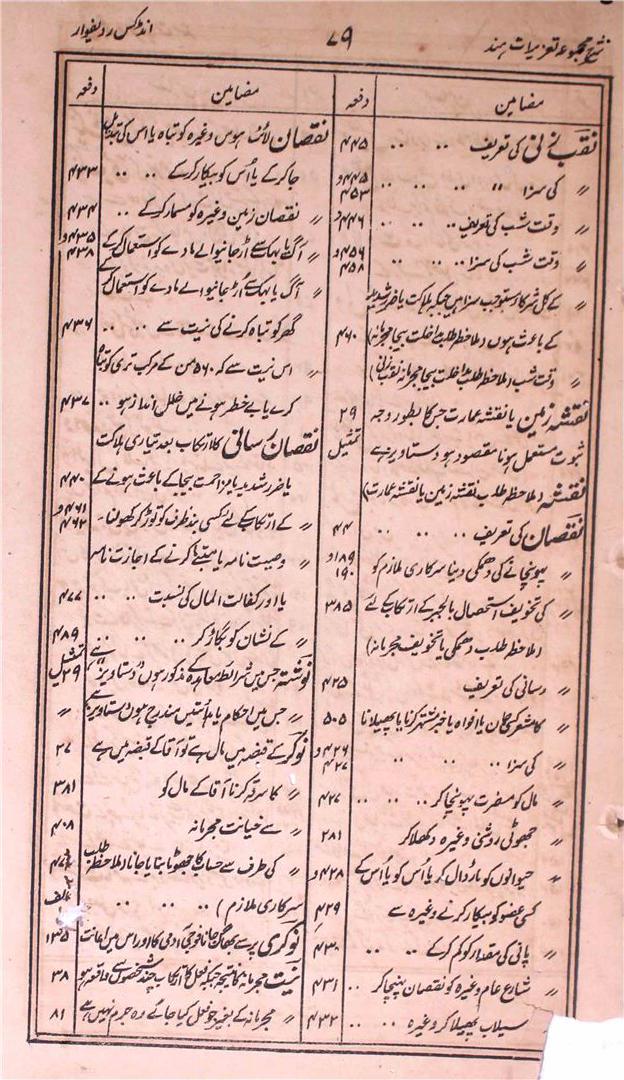 شرح مجموعہ تعزیرات ہند
۷۹
انڈکس ردیفوار
مضامین
دفعہ
نقب زنی کی تعریف ۴۴۵
〃 کی سزا 〃 ۴۵۳
〃 وقت شب کی تعریف ۴۴۶
〃 وقت شب کی سزا ۴۵۶ و ۴۵۸
〃 کے کل شرکا مستوجب سزا ہیں جبکہ ہلاکت یا ضرر شدید
کے باعث ہوں (ملاحظہ طلب مداخلت بیجا مجرمانہ) ۴۶۰
〃 وقت شب (ملاحظہ طلب مداخلت بیجا مجرمانہ نقب زنی)
نقشہ زمین یا نقشہ عمارت جس کا بطور وجہ ۲۹
ثبوت مستعمل ہونا مقصود ہو دستاویز ہے تمثیل
نقشہ (ملاحظہ طلب نقشہ زمین یا نقشہ عمارت)
نقصان کی تعریف ۴۴
〃 پہونچانے کی دھمکی دینا سرکاری ملازم کو ۱۸۹ و ۱۹۰
〃 کی تخویف استحصال بالجبر کے ارتکاب کے لئے ۳۸۵
(ملاحظہ طلب دھمکی یا تخویف مجرمانہ)
〃 رسانی کی تعریف ۴۲۵
〃 کا مشعر کسی بیان یا افواہ یا خبر مشتہر کرنا یا پھیلانا ۵۰۵
〃 کی سزا ۴۲۶ و ۴۲۷
〃 مال کو مضرت پہونچا کر ۴۲۷
〃 جھوٹی روشنی وغیرہ دکھلا کر ۲۸۱
〃 حیوانوں کو مار ڈال کر یا اُس کو یا اُس کے ۴۲۸ و
کسی عضو کو بیکار کرنے وغیرہ سے ۴۲۹
〃 پانی کی مقدار کو کم کر کے ۴۳۰
〃 شارع عام وغیرہ کو نقصان پہنچا کر ۴۳۱
〃 سیلاب پھیلا کر وغیرہ ۴۳۲
مضامین
دفعہ
نقصان لائٹ ہوس وغیرہ کو تباہ یا اس کی تبدیل
جا کر کے یا اُس کو بیکار کر کے ۴۳۳
〃 نقصان زمین وغیرہ کو مسمار کر کے ۴۳۴
〃 آگ یا بہک سے اُڑ جانیوالے مادے کو استعمال کر کے ۴۳۵ و ۴۳۸
〃 آگ یا بہک سے اُڑ جانیوالے مادے کو استعمال کر کے
گھر کو تباہ کرنے کی نیت سے ۴۳۶
〃 اس نیت سے کہ ۵۶۰ من کے مرکب تری کو تباہ
کرے یا بے خطر ہونے میں خلل انداز ہو ۴۳۷
نقصان رسانی کا ارتکاب بعد تیاری ہلاکت
یا ضرر شدید یا مزاحمت بیجا کے باعث ہونے کے ۴۴۰
〃 کے ارتکاب کے لئے کسی بند ظرف کو توڑ کر کھولنا ۴۶۱ و ۴۶۲
〃 وصیت نامہ یا متبنے کرنے کے اجازت نامہ
یا اور کفالت المال کی نسبت ۴۷۷
〃 کے نشان کو بگاڑ کر ۴۸۹
نوشتہ جس میں شرائط معاہدہ مذکور ہوں ”دستاویز“ ہے تمثیل ۲۹
〃 جس میں احکام یا ہدائتیں مندرج ہوں دستاویز ہے 〃
نوکر کے قبضہ میں مال ہے تو آقا کے قبضہ میں ہے ۲۷
〃 کا سرقہ کرنا آقا کے مال کو ۳۸۱
〃 سے خیانت مجرمانہ ۴۰۸
〃 کی طرف سے حساب کا جھوٹا بتایا جانا (ملاحظہ طلب ۴۷۷
سرکاری ملازم) الف
نوکری پر سے بھاگ جانا فوجی آدمی کا اور اس میں اعانت ۱۳۵
نیت مجرمانہ کا نتیجہ جبکہ فعل کا ارتکاب چند شخصوں سے واقعہ ہو ۳۸
〃 مجرمانہ کے بغیر جو فعل کیا جائے وہ جرم نہیں ہے ۸۱